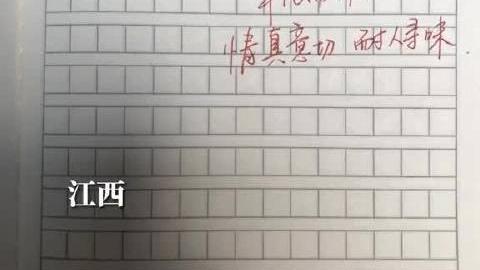 情真意切 耐人寻味
江西